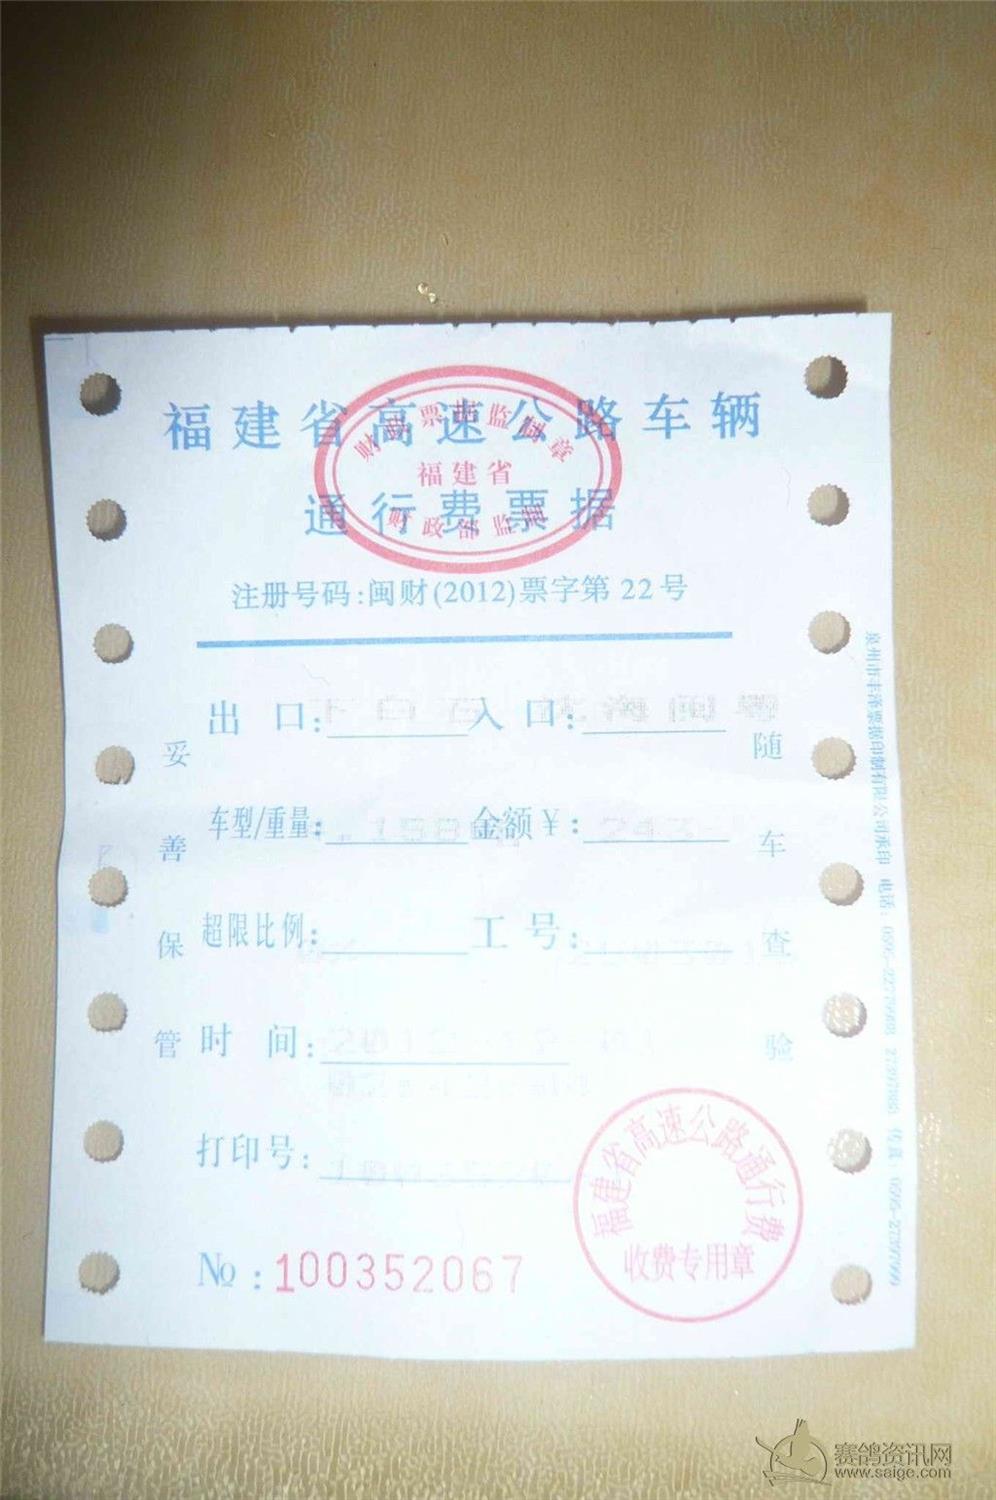 福建省高速公路车辆
通行费票据
财政票据监制章
福建省
财政部监制
注册号码:闽财(2012)票字第 22 号
出 口: 下白石 入 口: 沈海闽粤
车型/重量: 金额￥: 243
超限比例: 工 号:
时 间: 2012
打印号:
№ : 100352067
妥善保管
随车查验
福建省高速公路通行费
收费专用章
泉州市丰泽票据印制有限公司承印 电话:
赛鸽资讯网
www.saige.com